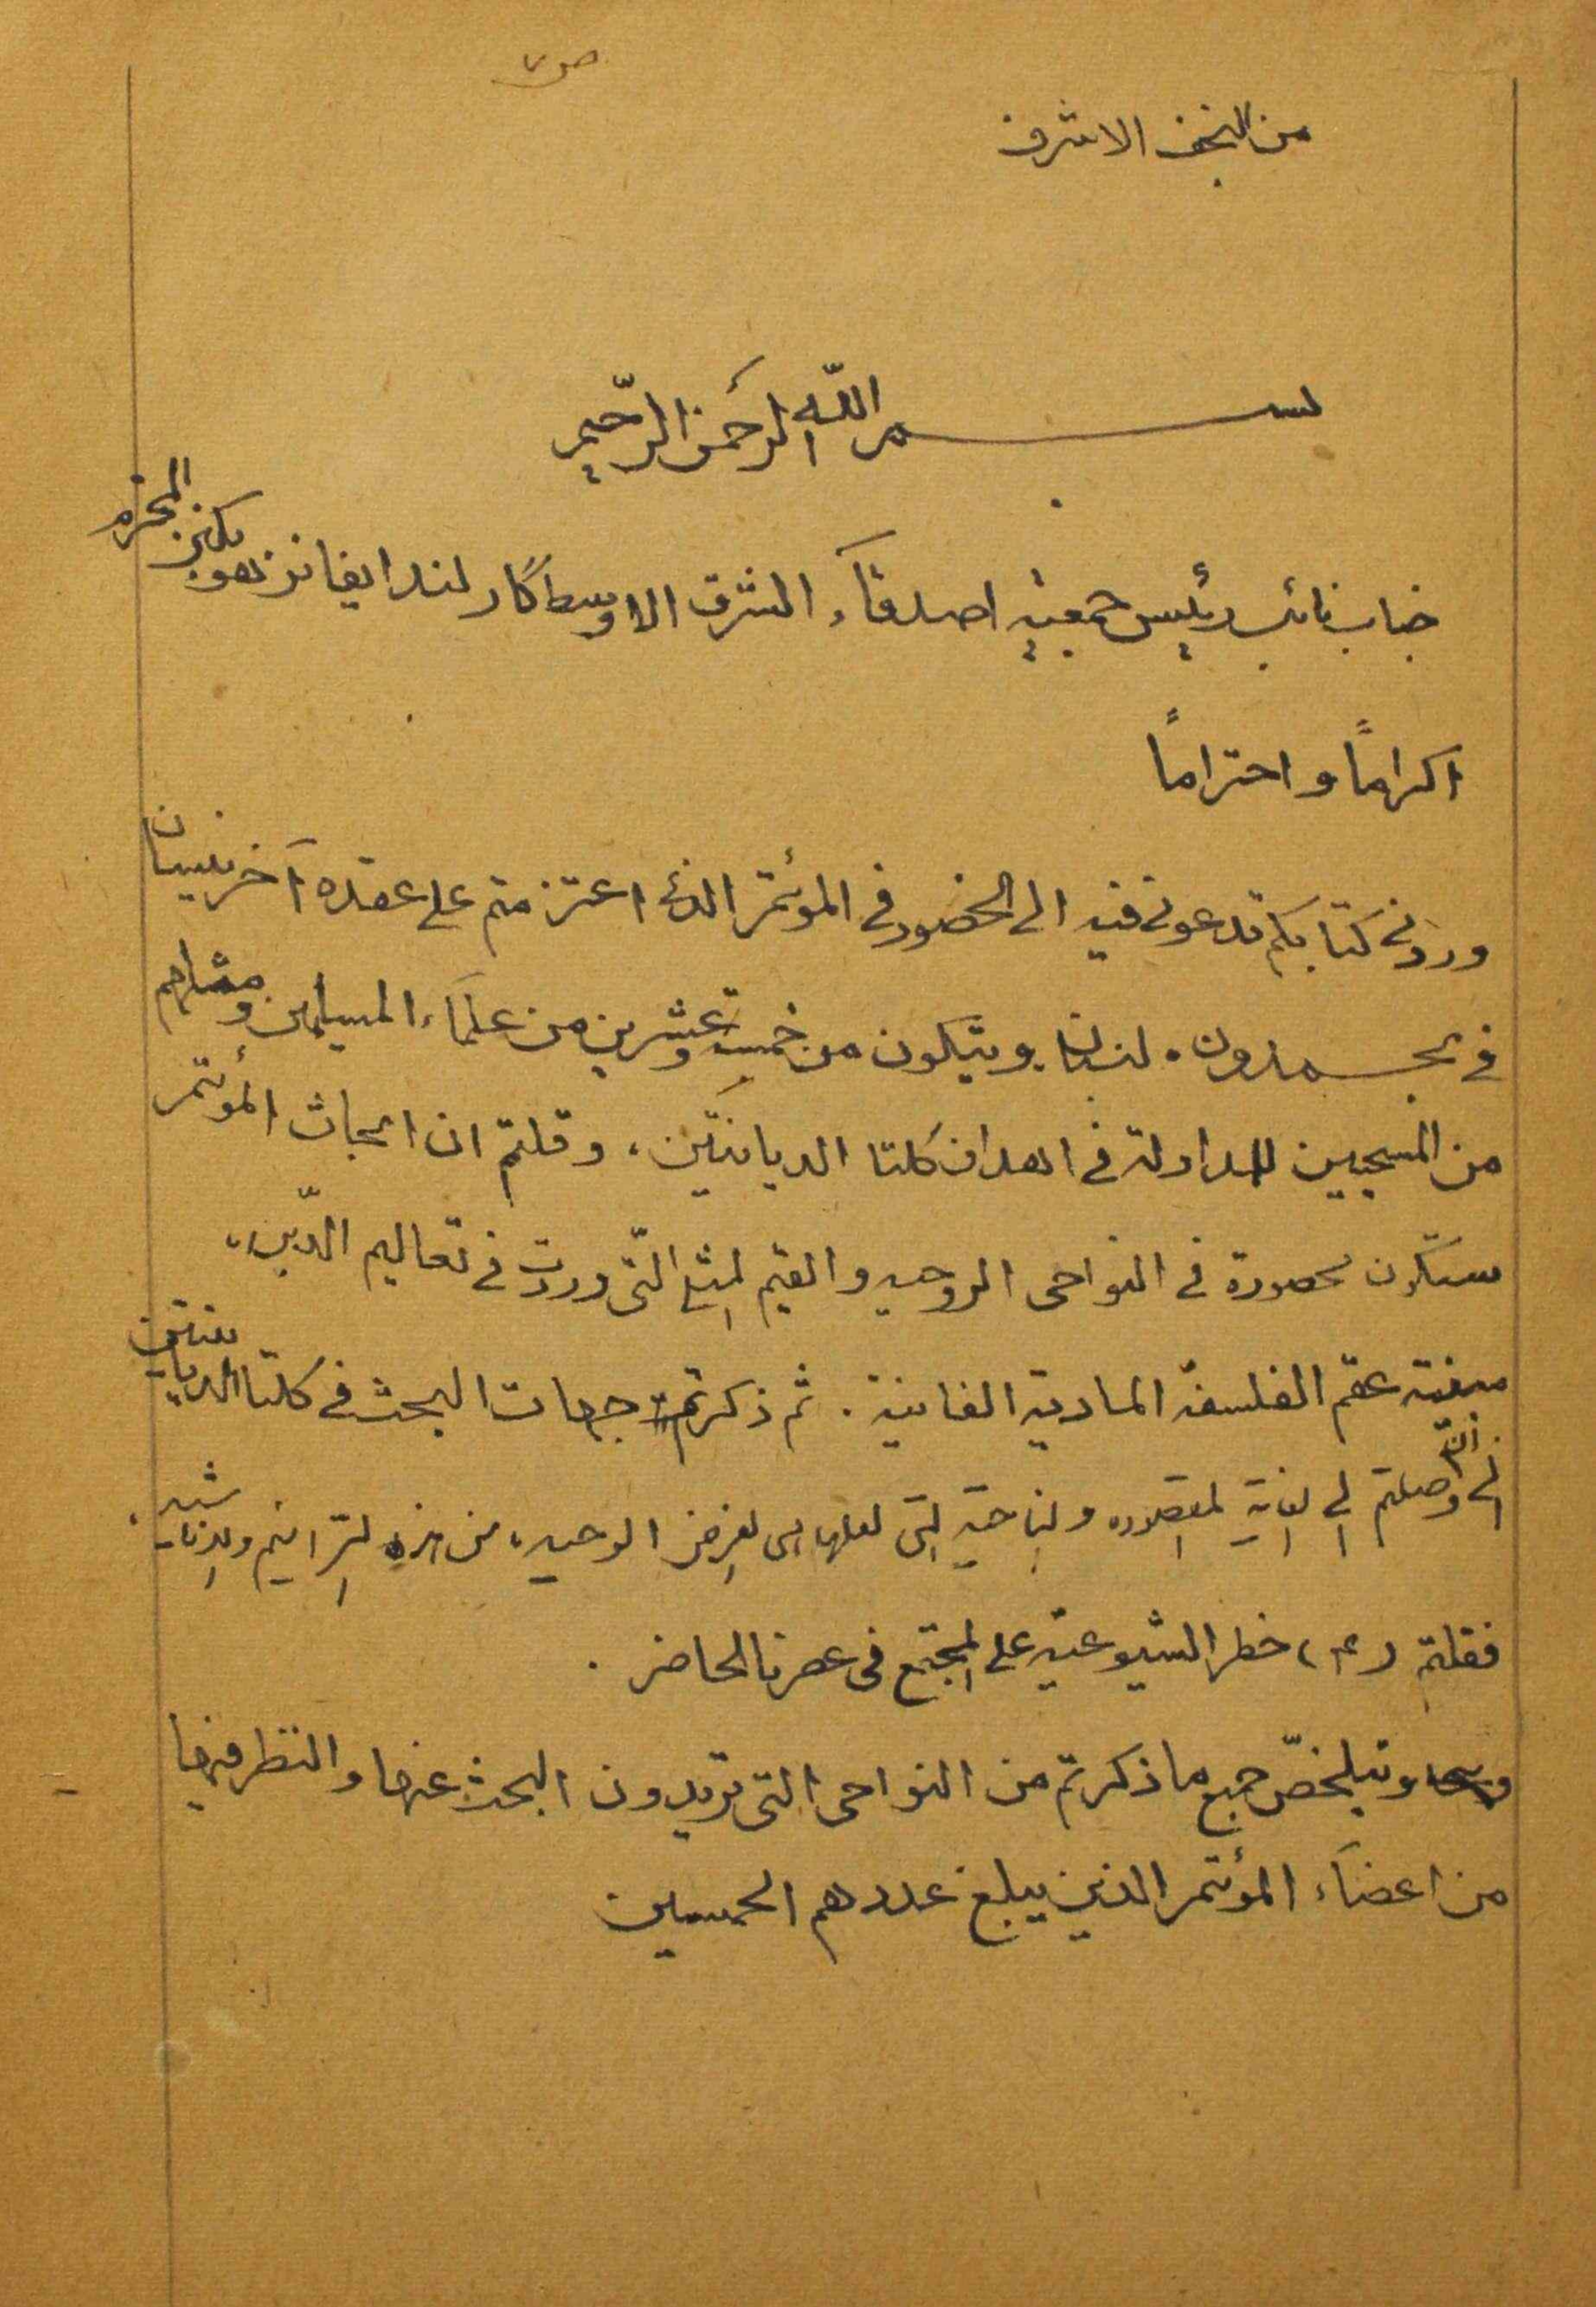 ص ٧
من النجف الاشرف
بسم الله الرحمن الرحيم
جناب نائب رئيس جمعية اصدقاء الشرق الاوسط كارلند ايفانز هوبكنز المحترم
اكراماً واحتراماً
وردني كتابكم تدعوني فيه الى الحضور في المؤتمر الذي اعتزمتم على عقده آخر نيسان
في بحمدون . لبنان ويتكون من خمسة وعشرين من علماء المسلمين ومثلهم
من المسيحيين للمداولة في اهداف كلتا الديانتين ، وقلتم ان ابحاث المؤتمر
ستكون محصورة في النواحي الروحيه والقيم المثلى التّي وردت في تعاليم الدّين ،
مبينة عقم الفلسفة المادية الفانية . ثم ذكرتم جهات البحث في كلتا الديانتين
الى أن وصلتم الى الغاية المقصوده والناحية التي لعلها هي الغرض الوحيد ، من هذه التّرانيم والاناشيد ،
فقلتم (٤) خطر الشيوعية على المجتمع في عصرنا الحاضر .
ويتلخّص جميع ما ذكرتم من النواحي التي تريدون البحث عنها والنظر فيها
من اعضاء المؤتمر الذين يبلغ عددهم الخمسين